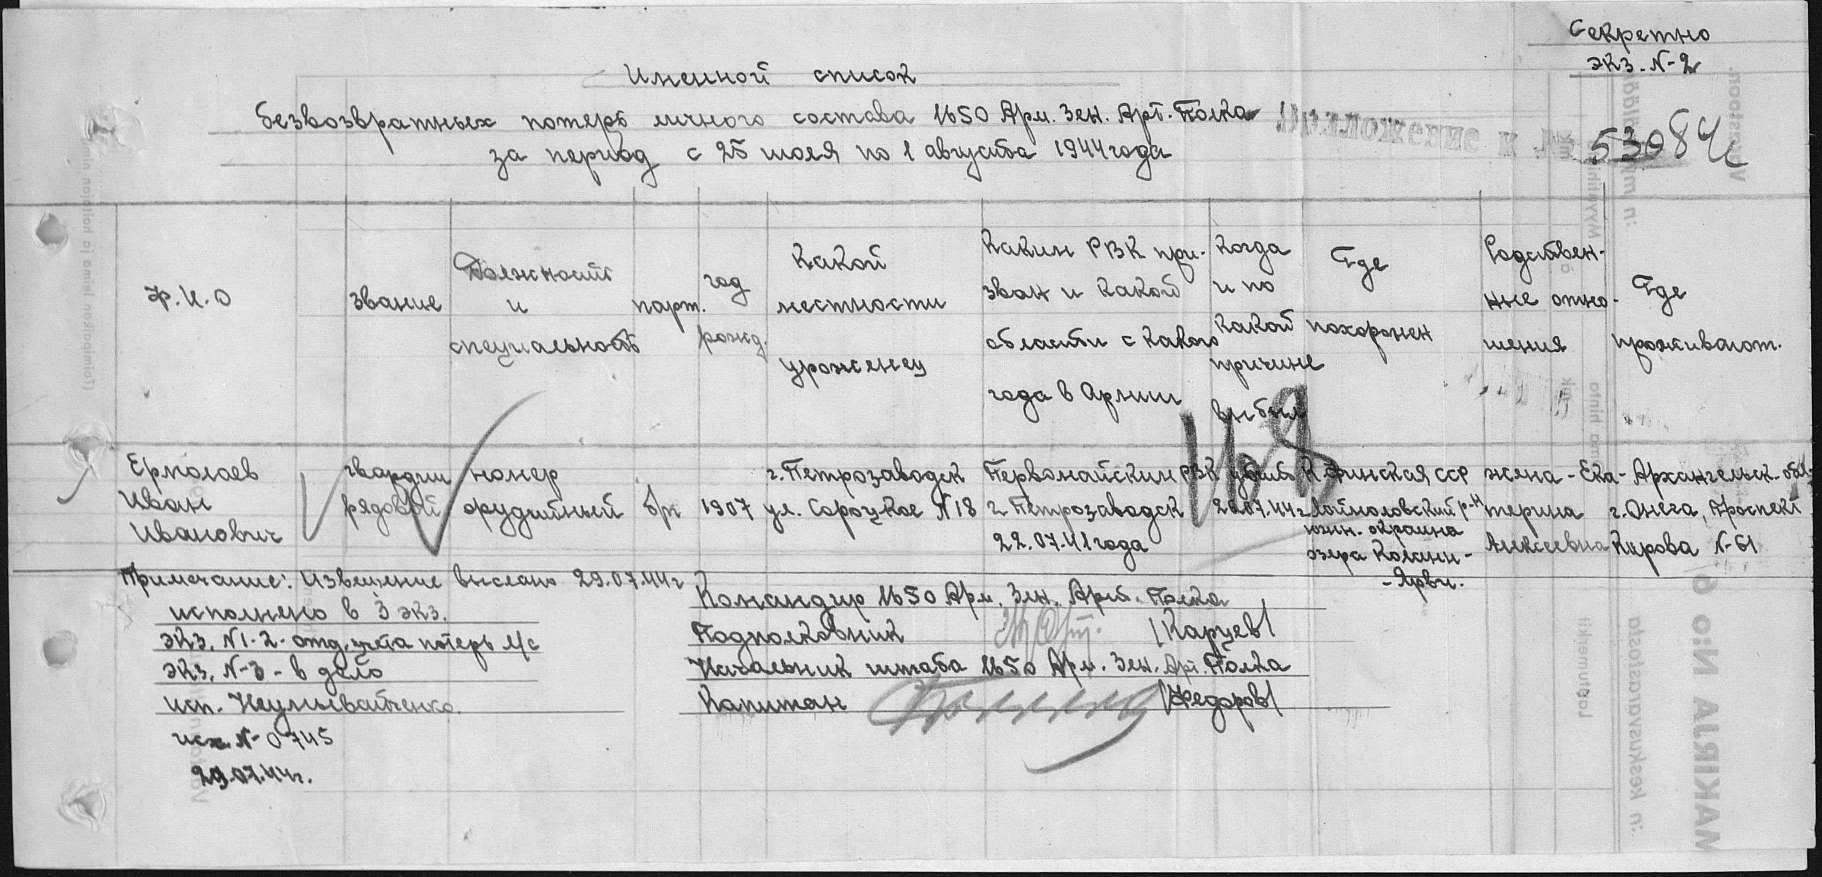 Секретно
экз. №-2
Именной список
безвозвратных потерь личного состава 1650 Арм. Зен. Арт. Полка
за период с 25 июля по 1 августа 1944 года
Приложение к №
53084с
Ф.И.О
звание
Должность
и
специальность
парт.
год
рожд.
Какой
местности
уроженец
Каким РВК при-
зван и какой
области с какого
года в Армии
Когда
и по
какой
причине
выбыл
Где
похоронен
Родствен-
ные отно-
шения
Где
проживают.
Ермолаев
Иван
Иванович
гвардии
рядовой
номер
орудийный
б/п
1907
г. Петрозаводск
ул. Сороцкое №18
Первомайским РВК
г. Петрозаводск
22.07.41 года
убит
07.44 г.
К-Финская ССР
Лоймоловский р-н
южн. окраина
озера
-Ярви.
жена - Ека-
терина
Алексеевна
Архангельск. обл.
г. Онега, Проспект
Кирова №-61
Примечание: Извещение выслано 29.07.44 г
исполнено в 3 экз.
экз. №1-2- отд. учёта потерь л/с
экз. №-3 - в дело
исп.
исх. №-0745
29.07.44 г.
Командир 1650 Арм. Зен. Арт. Полка
Подполковник /Карцев/
Начальник штаба 1650 Арм. Зен. Арт. Полка
Капитан /Федоров/
MAKIRJA N:o 6
:n keskusvarastosta
Laatumerkki